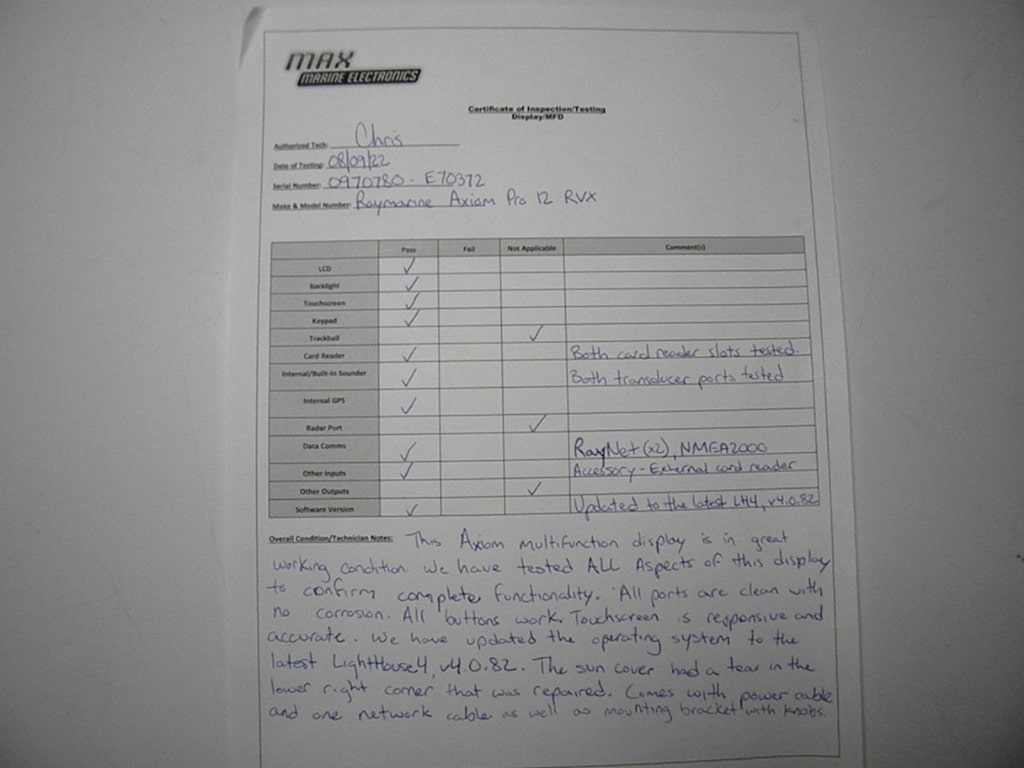 MAX
MARINE ELECTRONICS
Certificate of Inspection/Testing
Display/MFD
Authorized Tech: Chris
Date of Testing: 08/09/22
Serial Number: 0970780 - E70372
Make & Model Number: Raymarine Axiom Pro 12 RVX
Pass Fail Not Applicable Comment(s)
LCD ✓
Backlight ✓
Touchscreen ✓
Keypad ✓
Trackball ✓
Card Reader ✓ Both card reader slots tested.
Internal/Built-In Sounder ✓ Both transducer ports tested
Internal GPS ✓
Radar Port ✓
Data Comms ✓ RayNet (x2), NMEA2000
Other Inputs ✓ Accessory - External card reader
Other Outputs ✓
Software Version ✓ Updated to the latest LH4, v4.0.82
Overall Condition/Technician Notes: This Axiom multifunction display is in great
working condition. We have tested ALL Aspects of this display
to confirm complete functionality. All ports are clean with
no corrosion. All buttons work. Touchscreen is responsive and
accurate. We have updated the operating system to the
latest LightHouse4, v4.0.82. The sun cover had a tear in the
lower right corner that was repaired. Comes with power cable
and one network cable as well as mounting bracket with knobs.